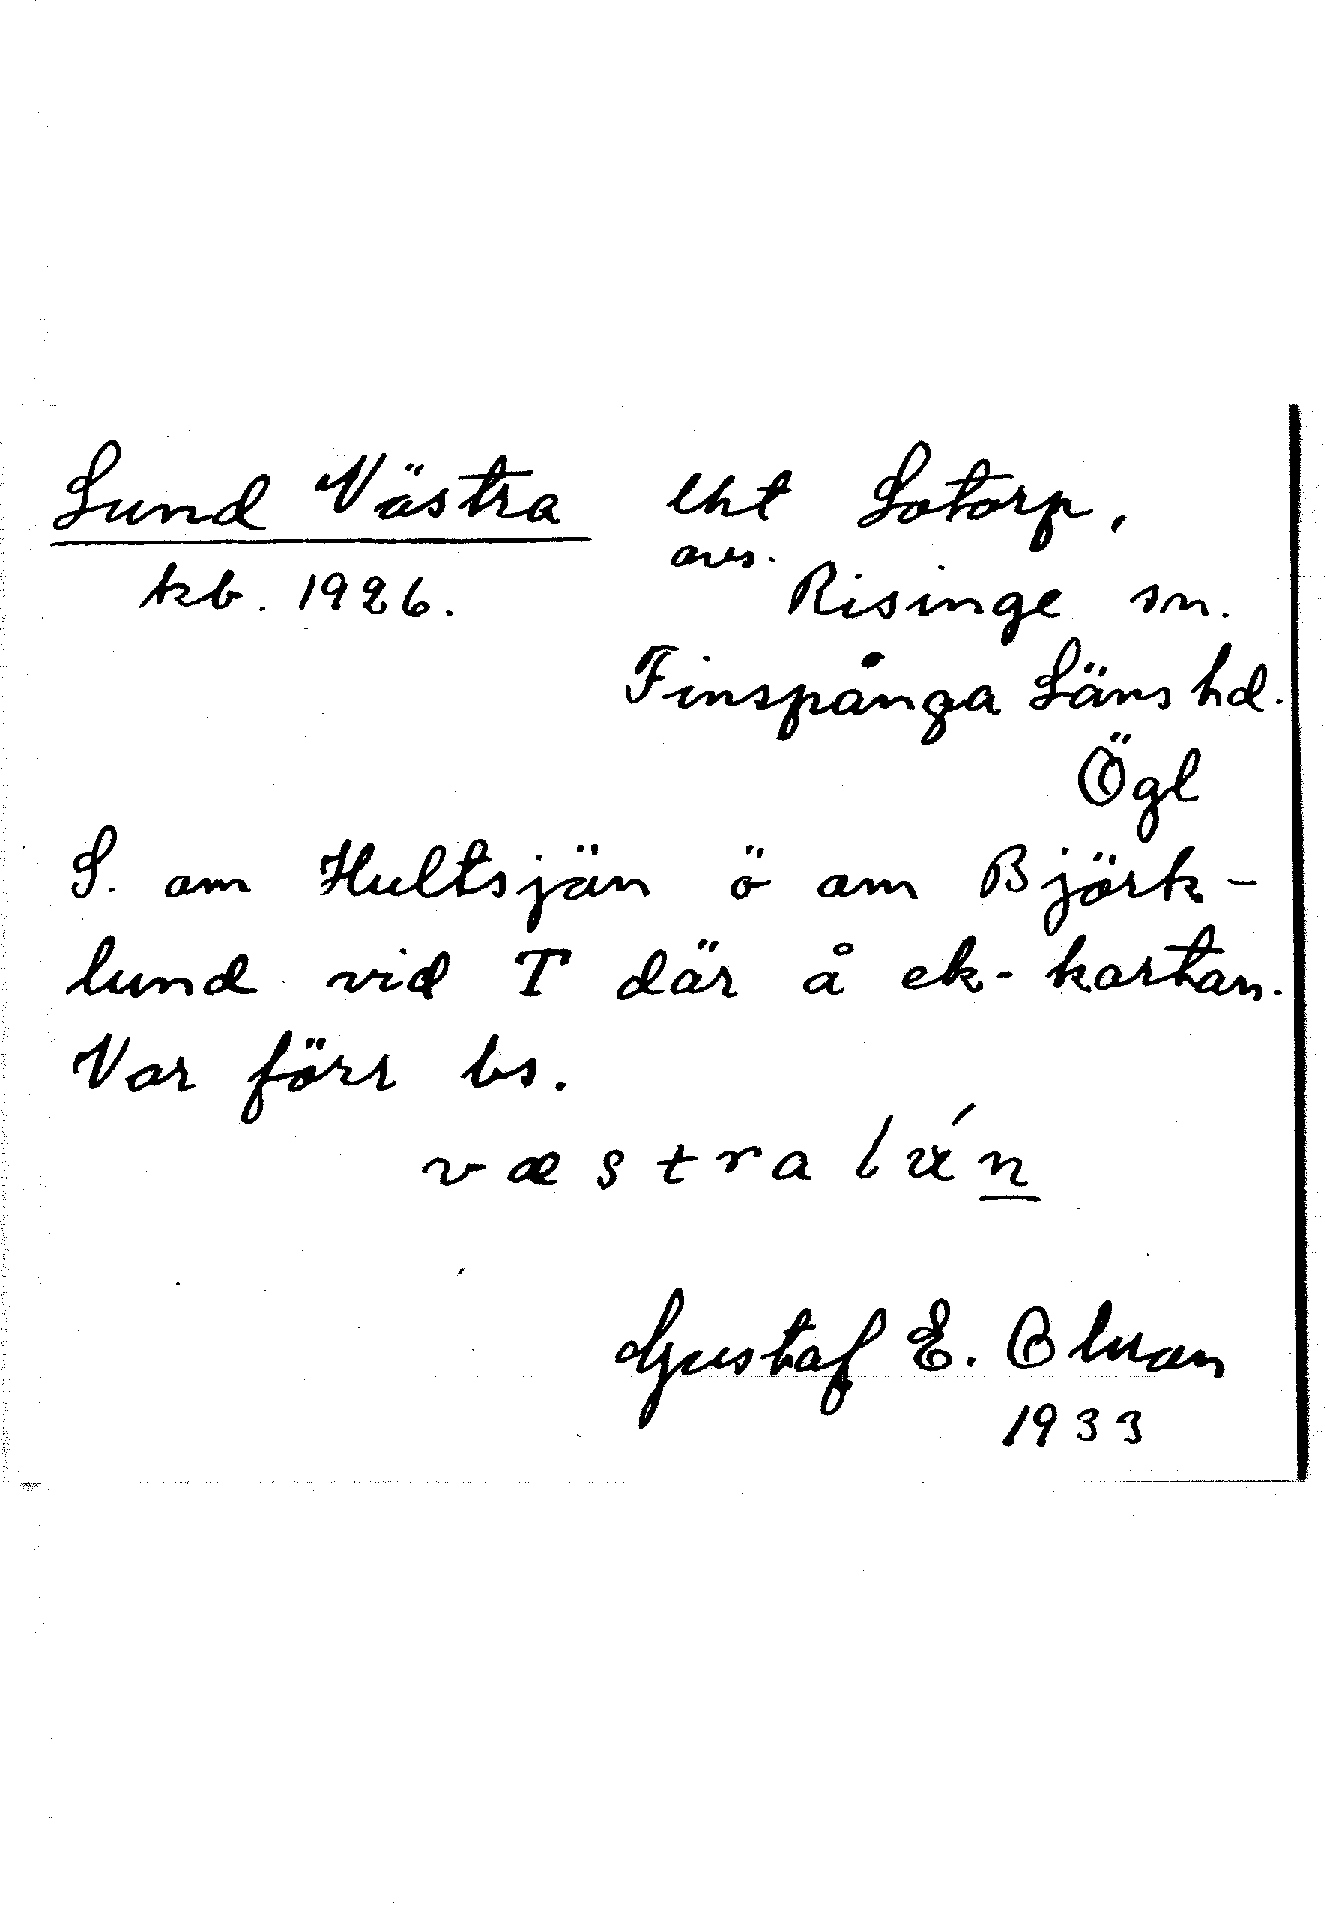 Lund Västra lht Lotorp,
avs.
kb. 1926. Risinge sn.
Finspånga Läns hd.
Ögl
S. om Hultsjön ö om Björk-
lund vid T där å ek-kartan.
Var förr bs.
væstra
Gustaf E.
1933